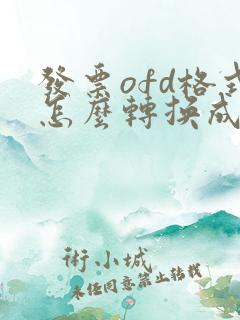 發票ofd格式
怎麼轉換成
術小城
未經同意禁止轉載